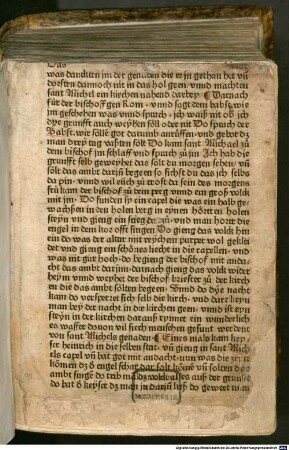 was danckten jm der genaden die er jn gethan het vñ
dorsten darnoch nit in das hol geen. vnnd machten
sant Michel ein kirchen nahend darbey ¶ Darnach
für der bischoff gen Rom. vnnd sagt dem babst wie
jm geschehen was vnnd sprach. ich waiß nit ob ich
dye grunfft auch weyhen söll oder nit Do sprach der
Babst. wir söllē got darumb anrüffen. vnd gebot dz
man drey tag vasten sölt Do kam sant Michael zů
dem bischof jm schlaff vnd sprach zů jm Ich hab die
grunfft selb geweyhet das solt du morgen sehen. vñ
solt das ambt darjn begeen so sichst du das ich selbs
da pin. vnd wil euch zů trost da sein des morgens
frů kam der bischof zů dem perg vnnd ein groß volck
mit jm. Do funden sy ein capell die was ein halb ge-
wachsen in den holen berg in eynen hörtten holen
steyn vnd gieng ein steig dezů. vnd man hort die
engel in dem kor offt singen Do gieng das volck hin
ein do was der alter mit reychem purper wol geklei
det vnd gieng ein schönes liecht in die capellen. vnd
was nit gar hoch. do begieng der bischof mit andacht
das ambt darjnn. darnach gieng das volck wider
heym vnnd weyhet der bischof briester zů der kirch
en die das ambt solten begeen. Vnnd do dye nacht
kam do versperret sich selb die kirch. vnd dare keyn
man bey der nacht in die kirchen geen. vnnd ist eyn
steyn in der kirchen darauß rynnet ein wunderlich
es wasser dauon vil siech menschen gesunt werdent
von sant Michels genaden ¶ Eines mals kam key-
ser heinrich in die selben stat. vñ gieng in sant Mich
els capel vñ bat got mit andacht.